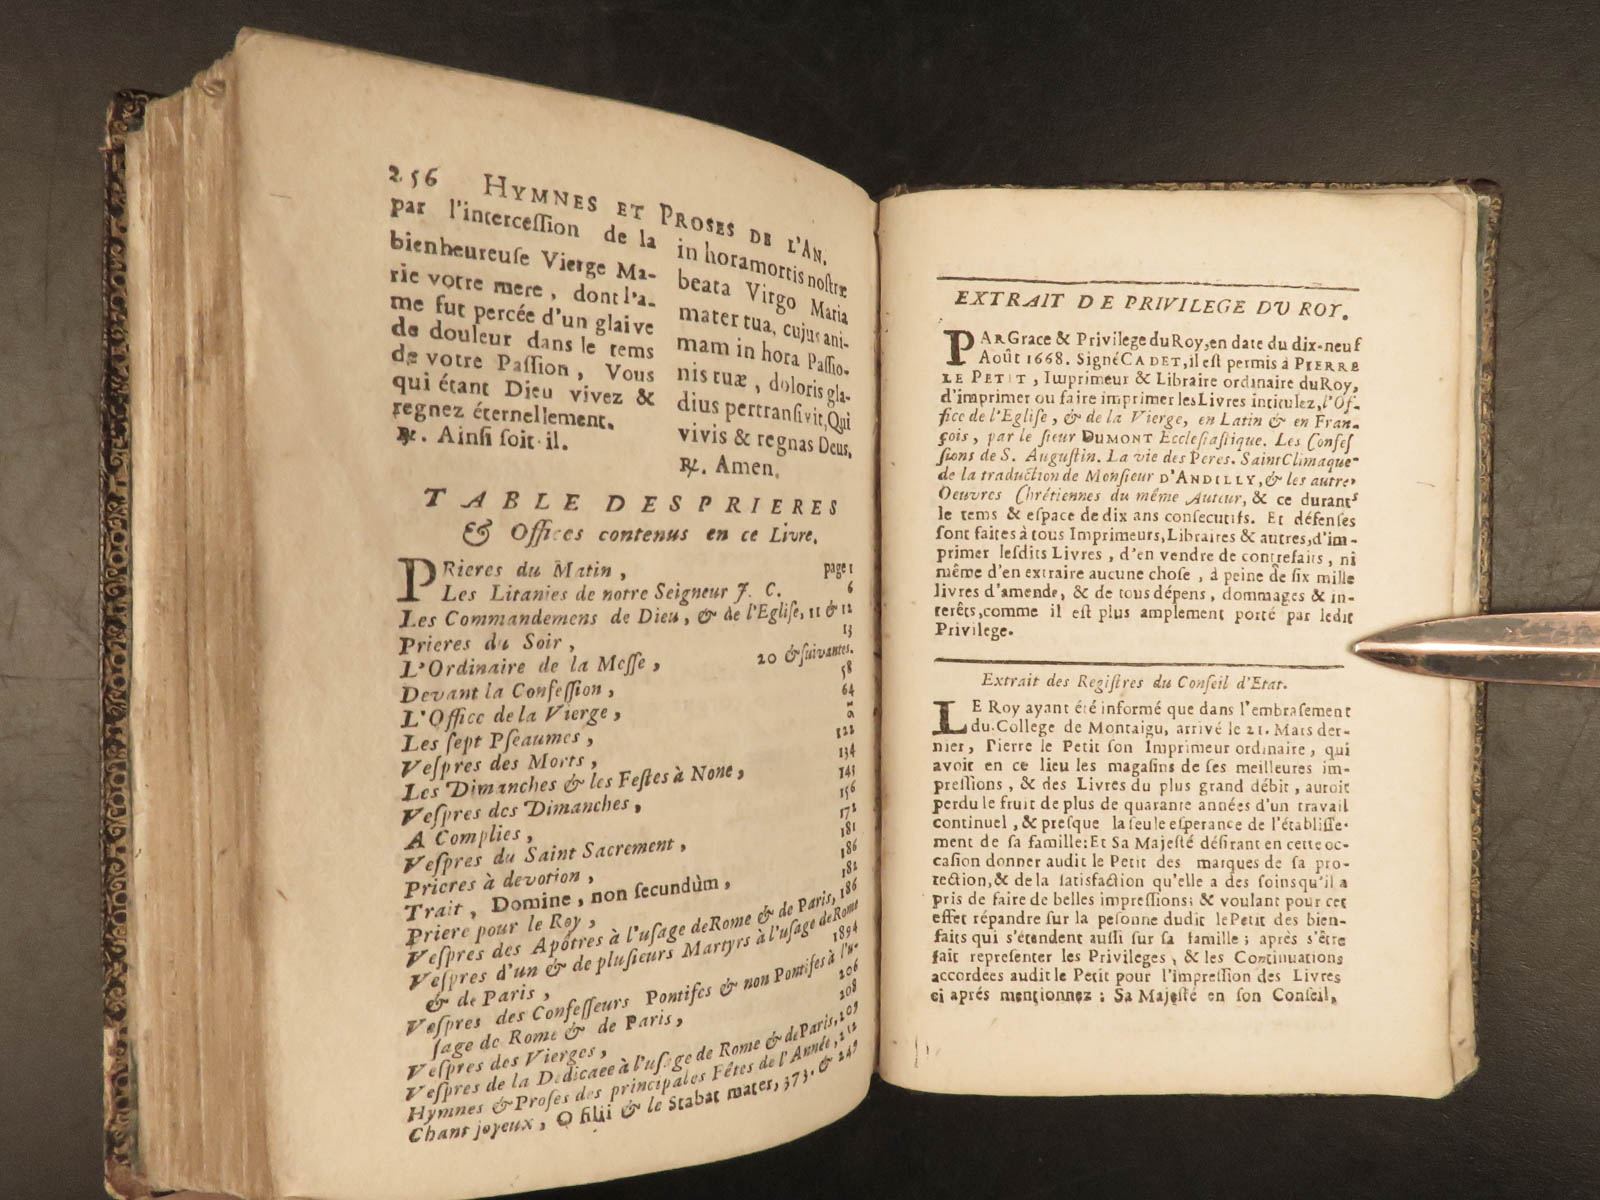 256 HYMNES ET PROSES DE L'AN.
par l'interceſſion de la
bienheureuſe Vierge Ma-
rie votre mere, dont l'a-
me fut percée d'un glaive
de douleur dans le tems
de votre Paſſion, Vous
qui étant Dieu vivez &
regnez éternellement.
℟. Ainſi ſoit-il.
in hora mortis noſtræ
beata Virgo Maria
mater tua, cujus ani-
mam in hora Paſſio-
nis tuæ, doloris gla-
dius pertranſivit, Qui
vivis & regnas Deus,
℟. Amen.
TABLE DES PRIERES
& Offices contenus en ce Livre.
PRieres du Matin, page 1
Les Litanies de notre Seigneur J. C. 6
Les Commandemens de Dieu, & de l'Egliſe, 11 & 12
Prieres du Soir, 13
L'Ordinaire de la Meſſe, 20 & ſuivantes.
Devant la Confeſſion, 58
L'Office de la Vierge, 64
Les ſept Pſeaumes, 91
Veſpres des Morts, 122
Les Dimanches & les Feſtes à None, 134
Veſpres des Dimanches, 141
A Complies, 156
Veſpres du Saint Sacrement, 171
Prieres à devotion, 181
Trait, Domine, non ſecundùm, 186
Priere pour le Roy, 182
Veſpres des Apôtres à l'uſage de Rome & de Paris, 186
Veſpres d'un & de pluſieurs Martyrs à l'uſage de Rome
& de Paris, 1894
Veſpres des Confeſſeurs Pontifes & non Pontifes à l'u-
ſage de Rome & de Paris, 206
Veſpres des Vierges, 208
Veſpres de la Dedicace à l'uſage de Rome & de Paris, 209
Hymnes & Proſes des principales Fêtes de l'Année, 212
Chant joyeux, O filii & le Stabat mater, 373. & 249
EXTRAIT DE PRIVILEGE DU ROY.
PAR Grace & Privilege du Roy, en date du dix-neuf
Août 1668. Signé CADET, il eſt permis à PIERRE
LE PETIT, Imprimeur & Libraire ordinaire du Roy,
d'imprimer ou faire imprimer les Livres intitulez, l'Of-
fice de l'Egliſe, & de la Vierge, en Latin & en Fran-
çois, par le ſieur DUMONT Eccleſiaſtique. Les Confeſ
ſions de S. Auguſtin. La vie des Peres. Saint Climaque
de la traduction de Monſieur D'ANDILLY, & les autres
Oeuvres Chrétiennes du même Auteur, & ce durant
le tems & eſpace de dix ans conſecutifs. Et défenſes
ſont faites à tous Imprimeurs, Libraires & autres, d'im-
primer leſdits Livres, d'en vendre de contrefaits, ni
même d'en extraire aucune choſe, à peine de ſix mille
livres d'amende, & de tous dépens, dommages & in-
terêts, comme il eſt plus amplement porté par ledit
Privilege.
Extrait des Regiſtres du Conſeil d'Etat.
LE Roy ayant été informé que dans l'embraſement
du College de Montaigu, arrivé le 21. Mars der-
nier, Pierre le Petit ſon Imprimeur ordinaire, qui
avoit en ce lieu les magaſins de ſes meilleures im-
preſſions, & des Livres du plus grand débit, auroit
perdu le fruit de plus de quarante années d'un travail
continuel, & preſque la ſeule eſperance de l'établiſſe-
ment de ſa famille: Et Sa Majeſté déſirant en cette oc-
caſion donner audit le Petit des marques de ſa pro-
tection, & de la ſatisfaction qu'elle a des ſoins qu'il a
pris de faire de belles impreſſions; & voulant pour cet
effet répandre ſur la peſonne dudit le Petit des bien-
faits qui s'étendent auſſi ſur ſa famille; aprés s'être
fait repreſenter les Privileges, & les Continuations
accordées audit le Petit pour l'impreſſion des Livres
ci aprés mentionnez: Sa Majeſté en ſon Conſeil,